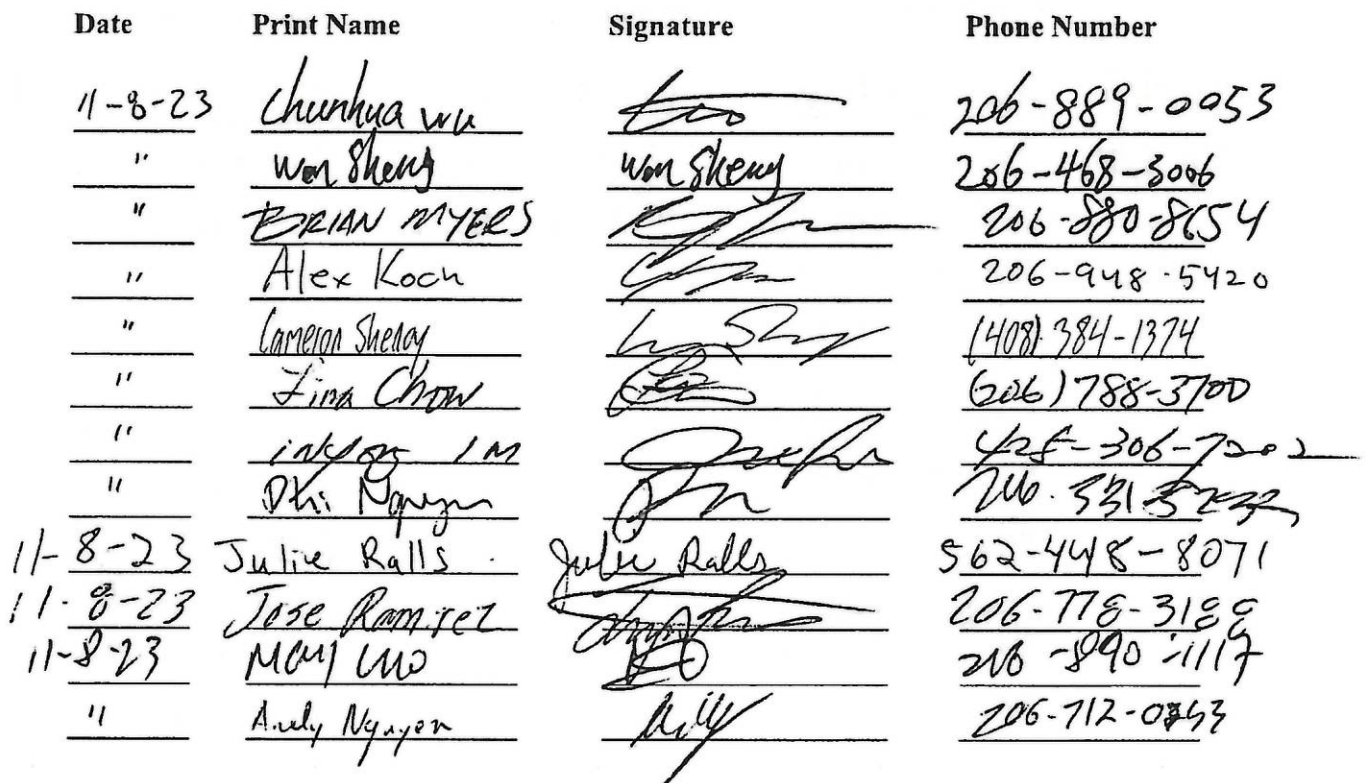 Date Print Name Signature Phone Number
11-8-23 Chunhua Wu 206-889-0053
" Wen Sheng Wen Sheng 206-468-3006
" BRIAN MYERS 206-880-8654
" Alex Koch 206-948-5420
" Cameron Shenoy (408) 384-1374
" Lina Chow (206) 788-3700
" inyong IM 425-306-7202
" Nguyen 206.331
11-8-23 Julie Ralls Julie Ralls 562-448-8071
11-8-23 Jose Ramirez 206-778-3188
11-8-23 206-890-1117
" Andy Nguyen 206-712-